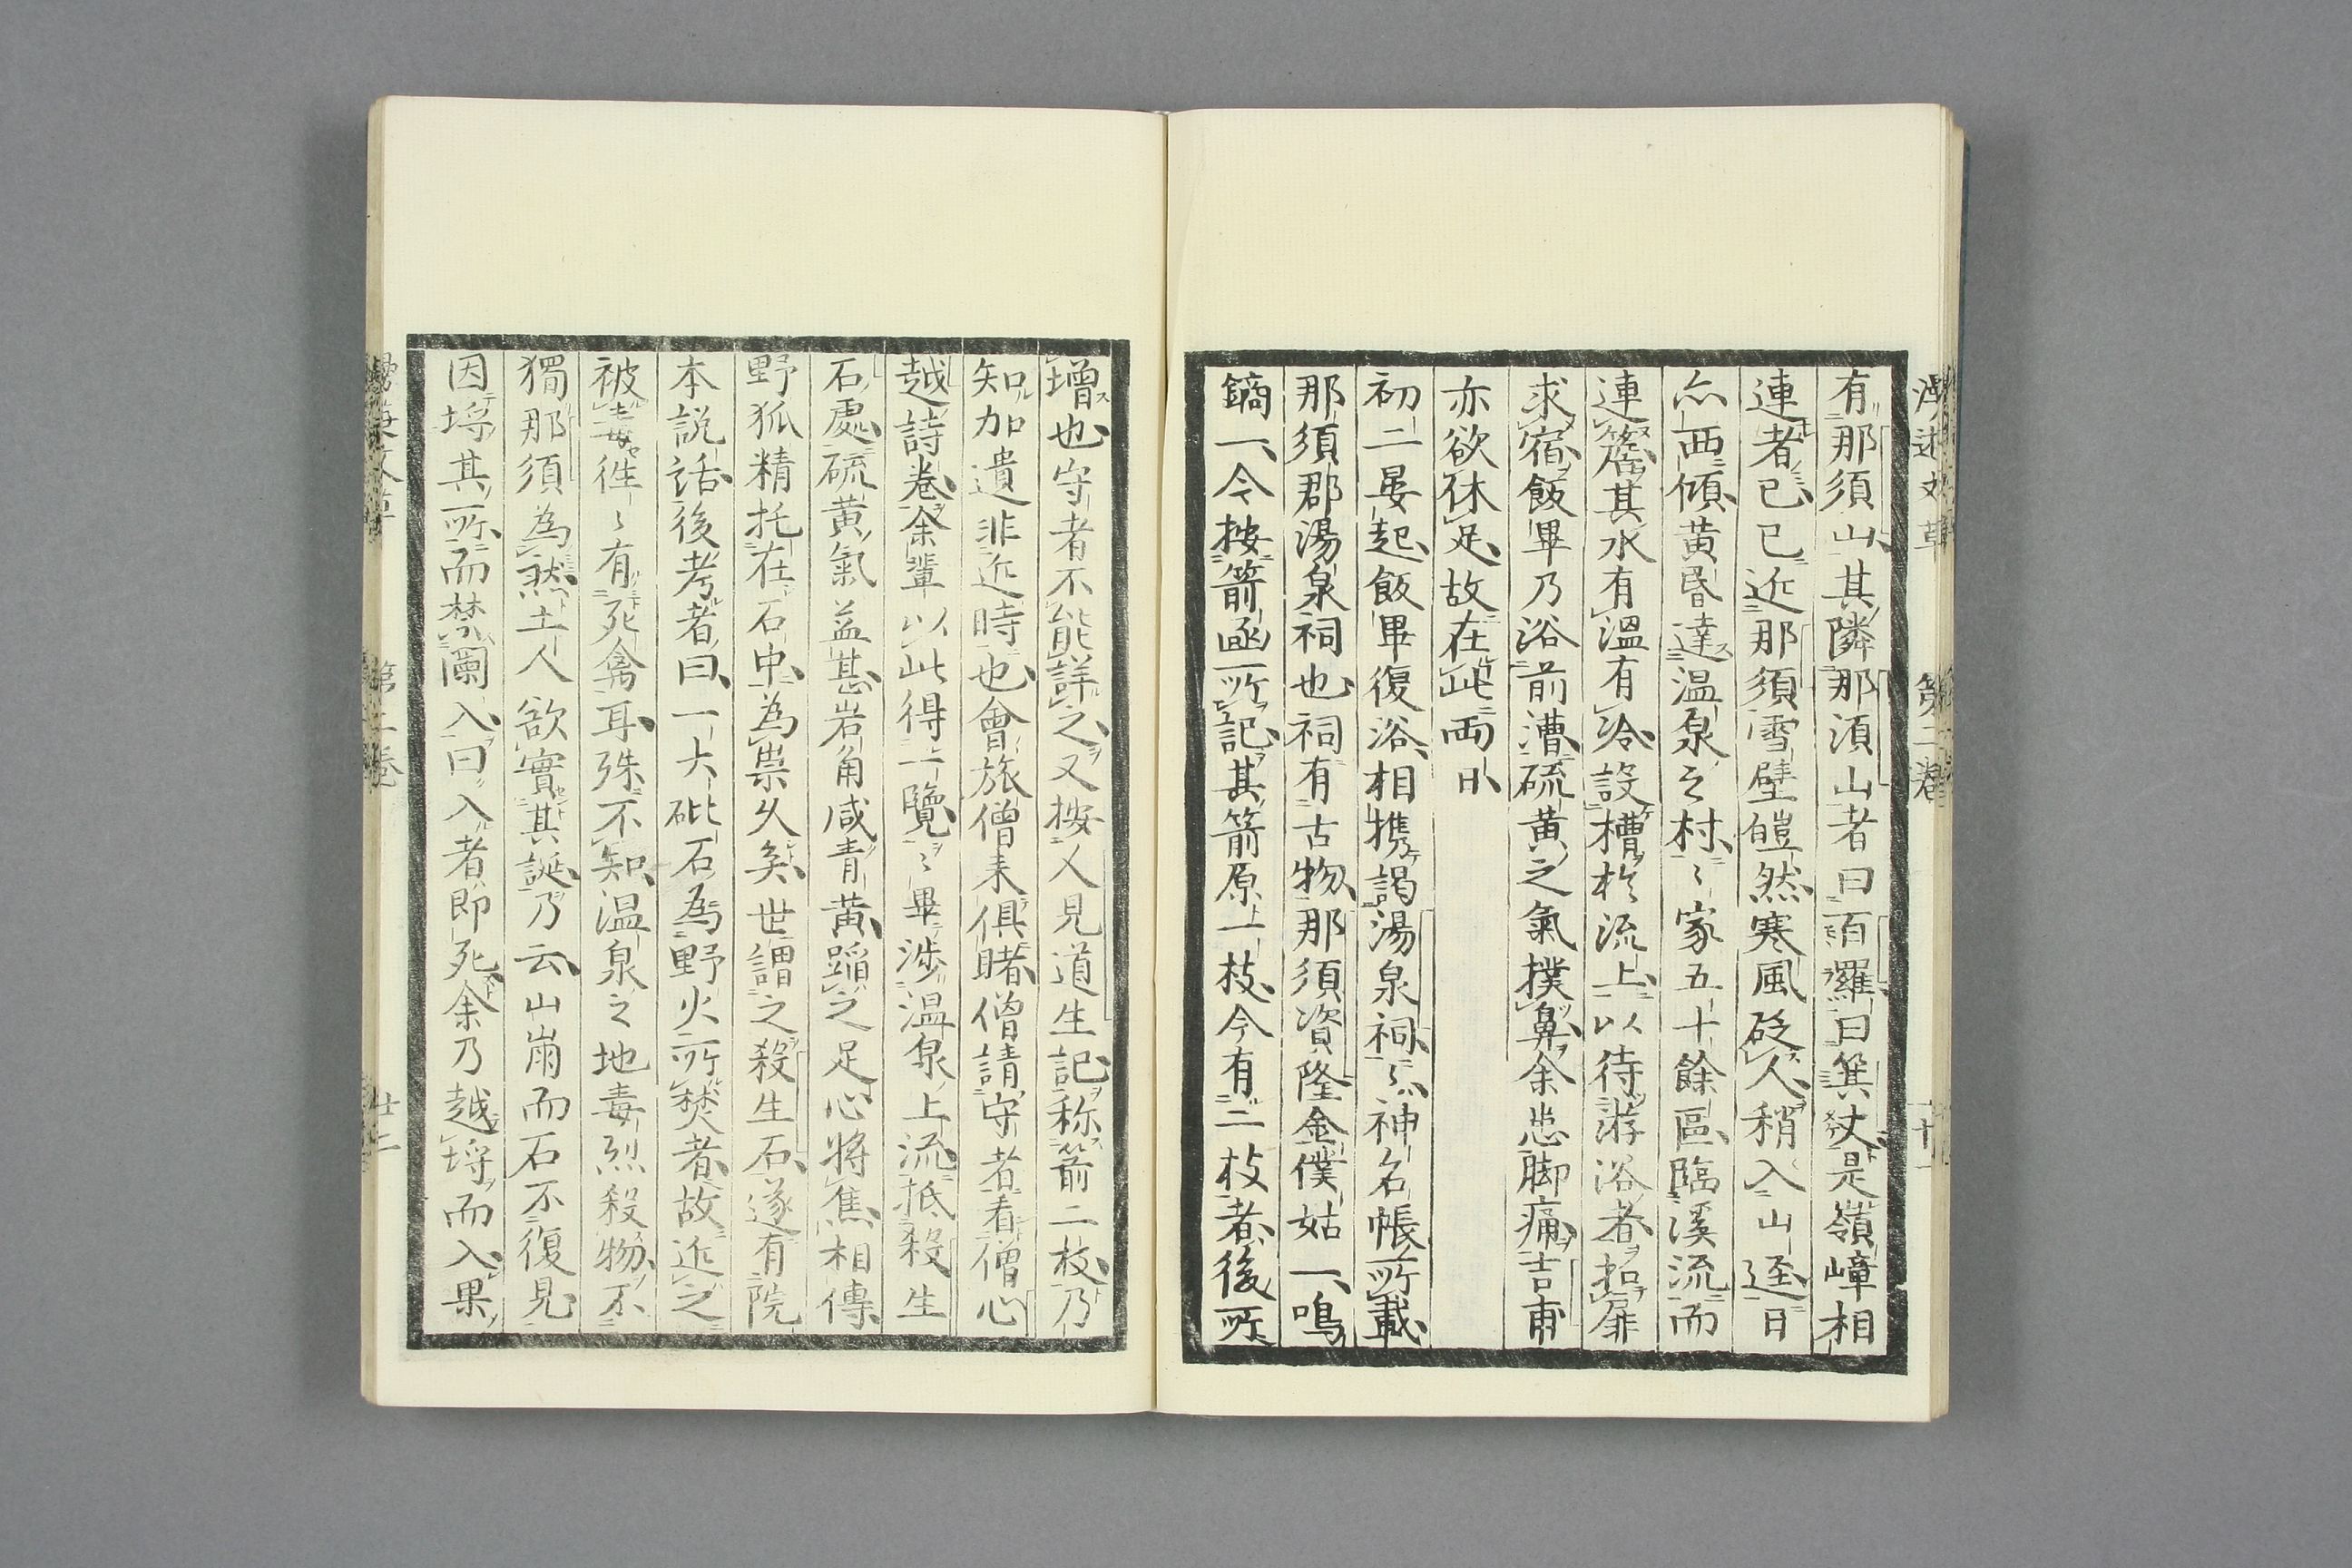 有那須山其隣那須山者曰百羅曰箕𠀋是嶺嶂相
連者已已近那須雪壁皚然寒風砭人稍入山逕日
亦西傾黄昏達温泉之村〻家五十餘區臨溪流而
連簷其水有溫有冷設槽於流上以待游浴者扣扉
求宿飯畢乃浴前漕硫黄之氣撲鼻余患脚痛吉甫
亦欲休足故在此両日
初二晏起飯畢復浴相携謁湯泉祠〻亦神名帳所載
那須郡湯泉祠也祠有古物那須資隆金僕姑一鳴
鏑一今按箭凾所記其箭原一枝今有二枝者後所
増也守者不能詳之又按乂見道生記称箭二枝乃
知加遺非近時也會旅僧来俱睹僧請守者看僧心
越詩卷余輩以此得一覽〻畢渉温泉上流抵殺生
石處硫黄氣益甚岩角咸青黄蹈之足心将焦相傳
野狐精托在石中為祟久矣世謂之殺生石遂有院
本説話後考者曰一大砒石為野火所焚者故近之
被毒徃〻有死禽耳殊不知温泉之地毒烈殺物不
獨那須為然土人欲實其誕乃云山崩而石不復見
因埒其所而禁闌入曰入者即死余乃越埒而入果
第二卷
十一
第二卷
十二